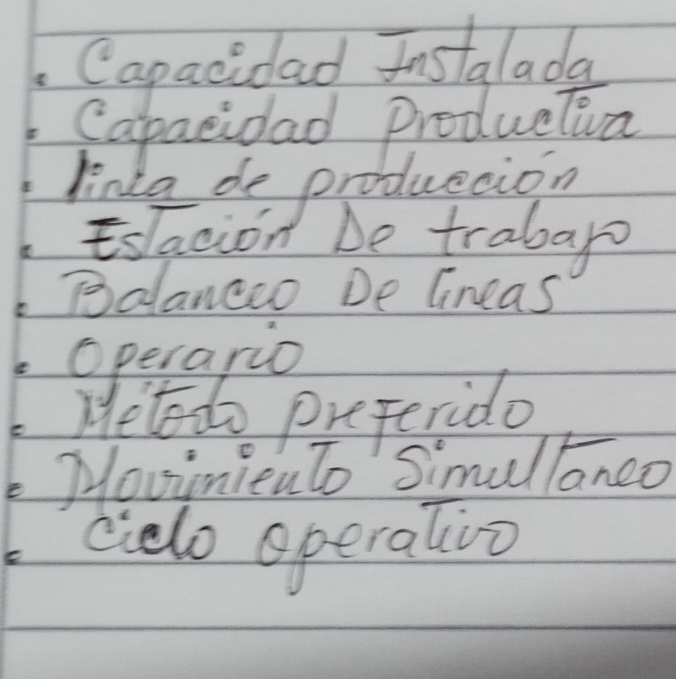 . Capacidad Instalada
. Capacidad Productiva
. linea de producción
. Estación De trabajo
. Balanceo De lineas
. Operario
. Metodo preferido
. Movimiento Simultaneo
. ciclo operativo